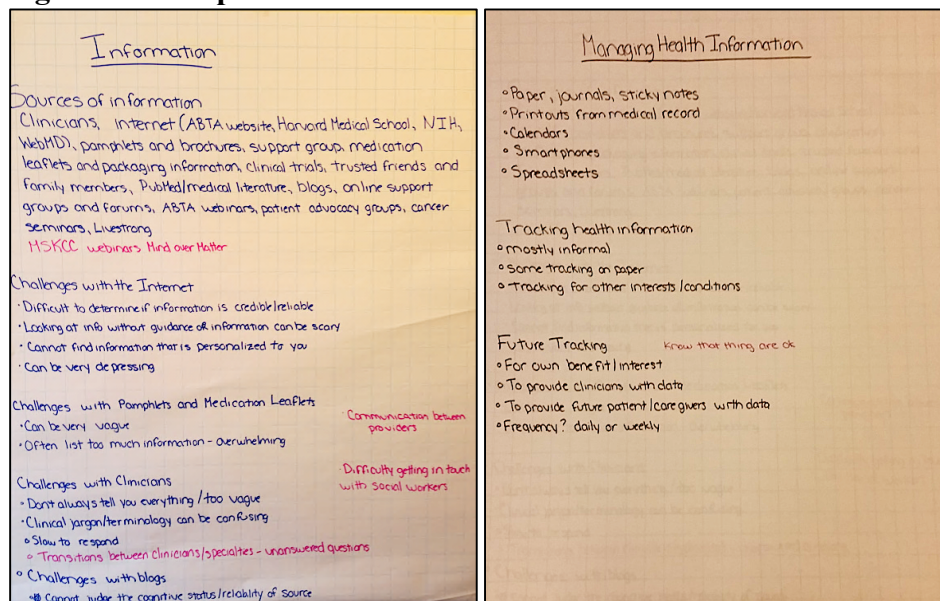 Information
Sources of information
Clinicians, internet (ABTA website, Harvard Medical School, NIH,
WebMD), pamphlets and brochures, support group, medication
leaflets and packaging information, clinical trials, trusted friends and
family members, PubMed/medical literature, blogs, online support
groups and forums, ABTA webinars, patient advocacy groups, cancer
seminars, Livestrong
MSKCC webinars Mind over Matter
Challenges with the Internet
· Difficult to determine if information is credible/reliable
· Looking at info without guidance of information can be scary
· Cannot find information that is personalized to you
· Can be very depressing
Challenges with Pamphlets and Medication Leaflets
· Can be very vague
· Often list too much information - overwhelming
· Communication between
providers
· Difficulty getting in touch
with social workers
Challenges with Clinicians
· Don't always tell you everything / too vague
· Clinical jargon/terminology can be confusing
° Slow to respond
° Transitions between clinicians/specialties - unanswered questions
° Challenges with blogs
Cannot judge the cognitive status/reliablity of source
Managing Health Information
° Paper, journals, sticky notes
° Printouts from medical record
° Calendars
° Smartphones
° Spreadsheets
Tracking health information
° mostly informal
° some tracking on paper
° tracking for other interests/conditions
Future Tracking
Know that thing are ok
° For own benefit/interest
° To provide clinicians with data
° To provide future patient/caregivers with data
° Frequency? daily or weekly